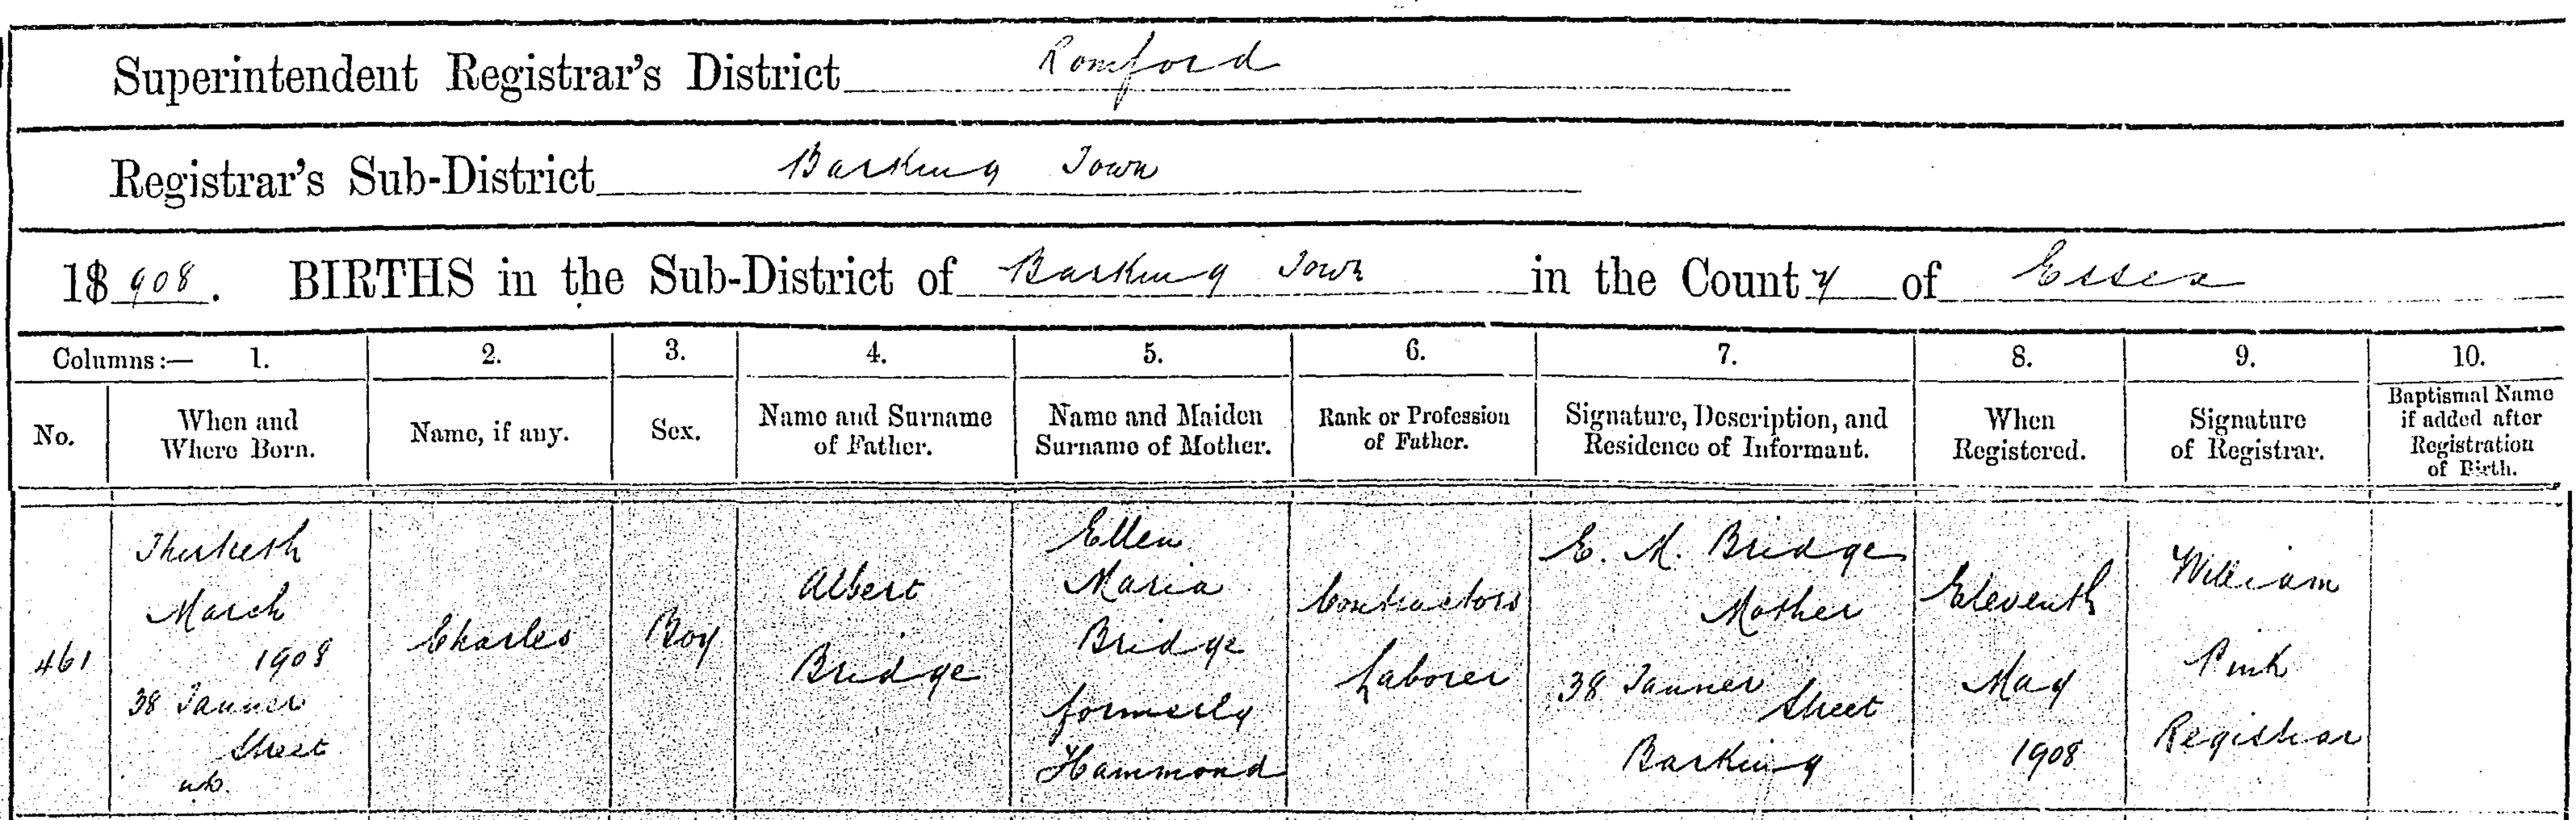 Superintendent Registrar's District Romford
Registrar's Sub-District Barking Town
1$ 908. BIRTHS in the Sub-District of Barking Town in the County of Essex
Columns:— 1. 2. 3. 4. 5. 6. 7. 8. 9. 10.
No.
When and
Where Born.
Name, if any.
Sex.
Name and Surname
of Father.
Name and Maiden
Surname of Mother.
Rank or Profession
of Father.
Signature, Description, and
Residence of Informant.
When
Registered.
Signature
of Registrar.
Baptismal Name
if added after
Registration
of Birth.
461
Thirtieth
March
1908
38 Tanner
Street
Charles
Boy
Albert
Bridge
Ellen
Maria
Bridge
formerly
Hammond
Contractors
Laborer
E. M. Bridge
Mother
38 Tanner
Street
Barking
Eleventh
May
1908
William
Pink
Registrar